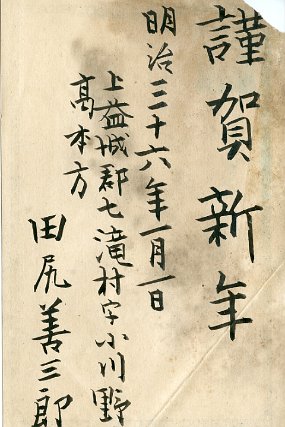 謹賀新年
明治三十六年一月一日
上益城郡七滝村字小川野
高本方
田尻善三郎